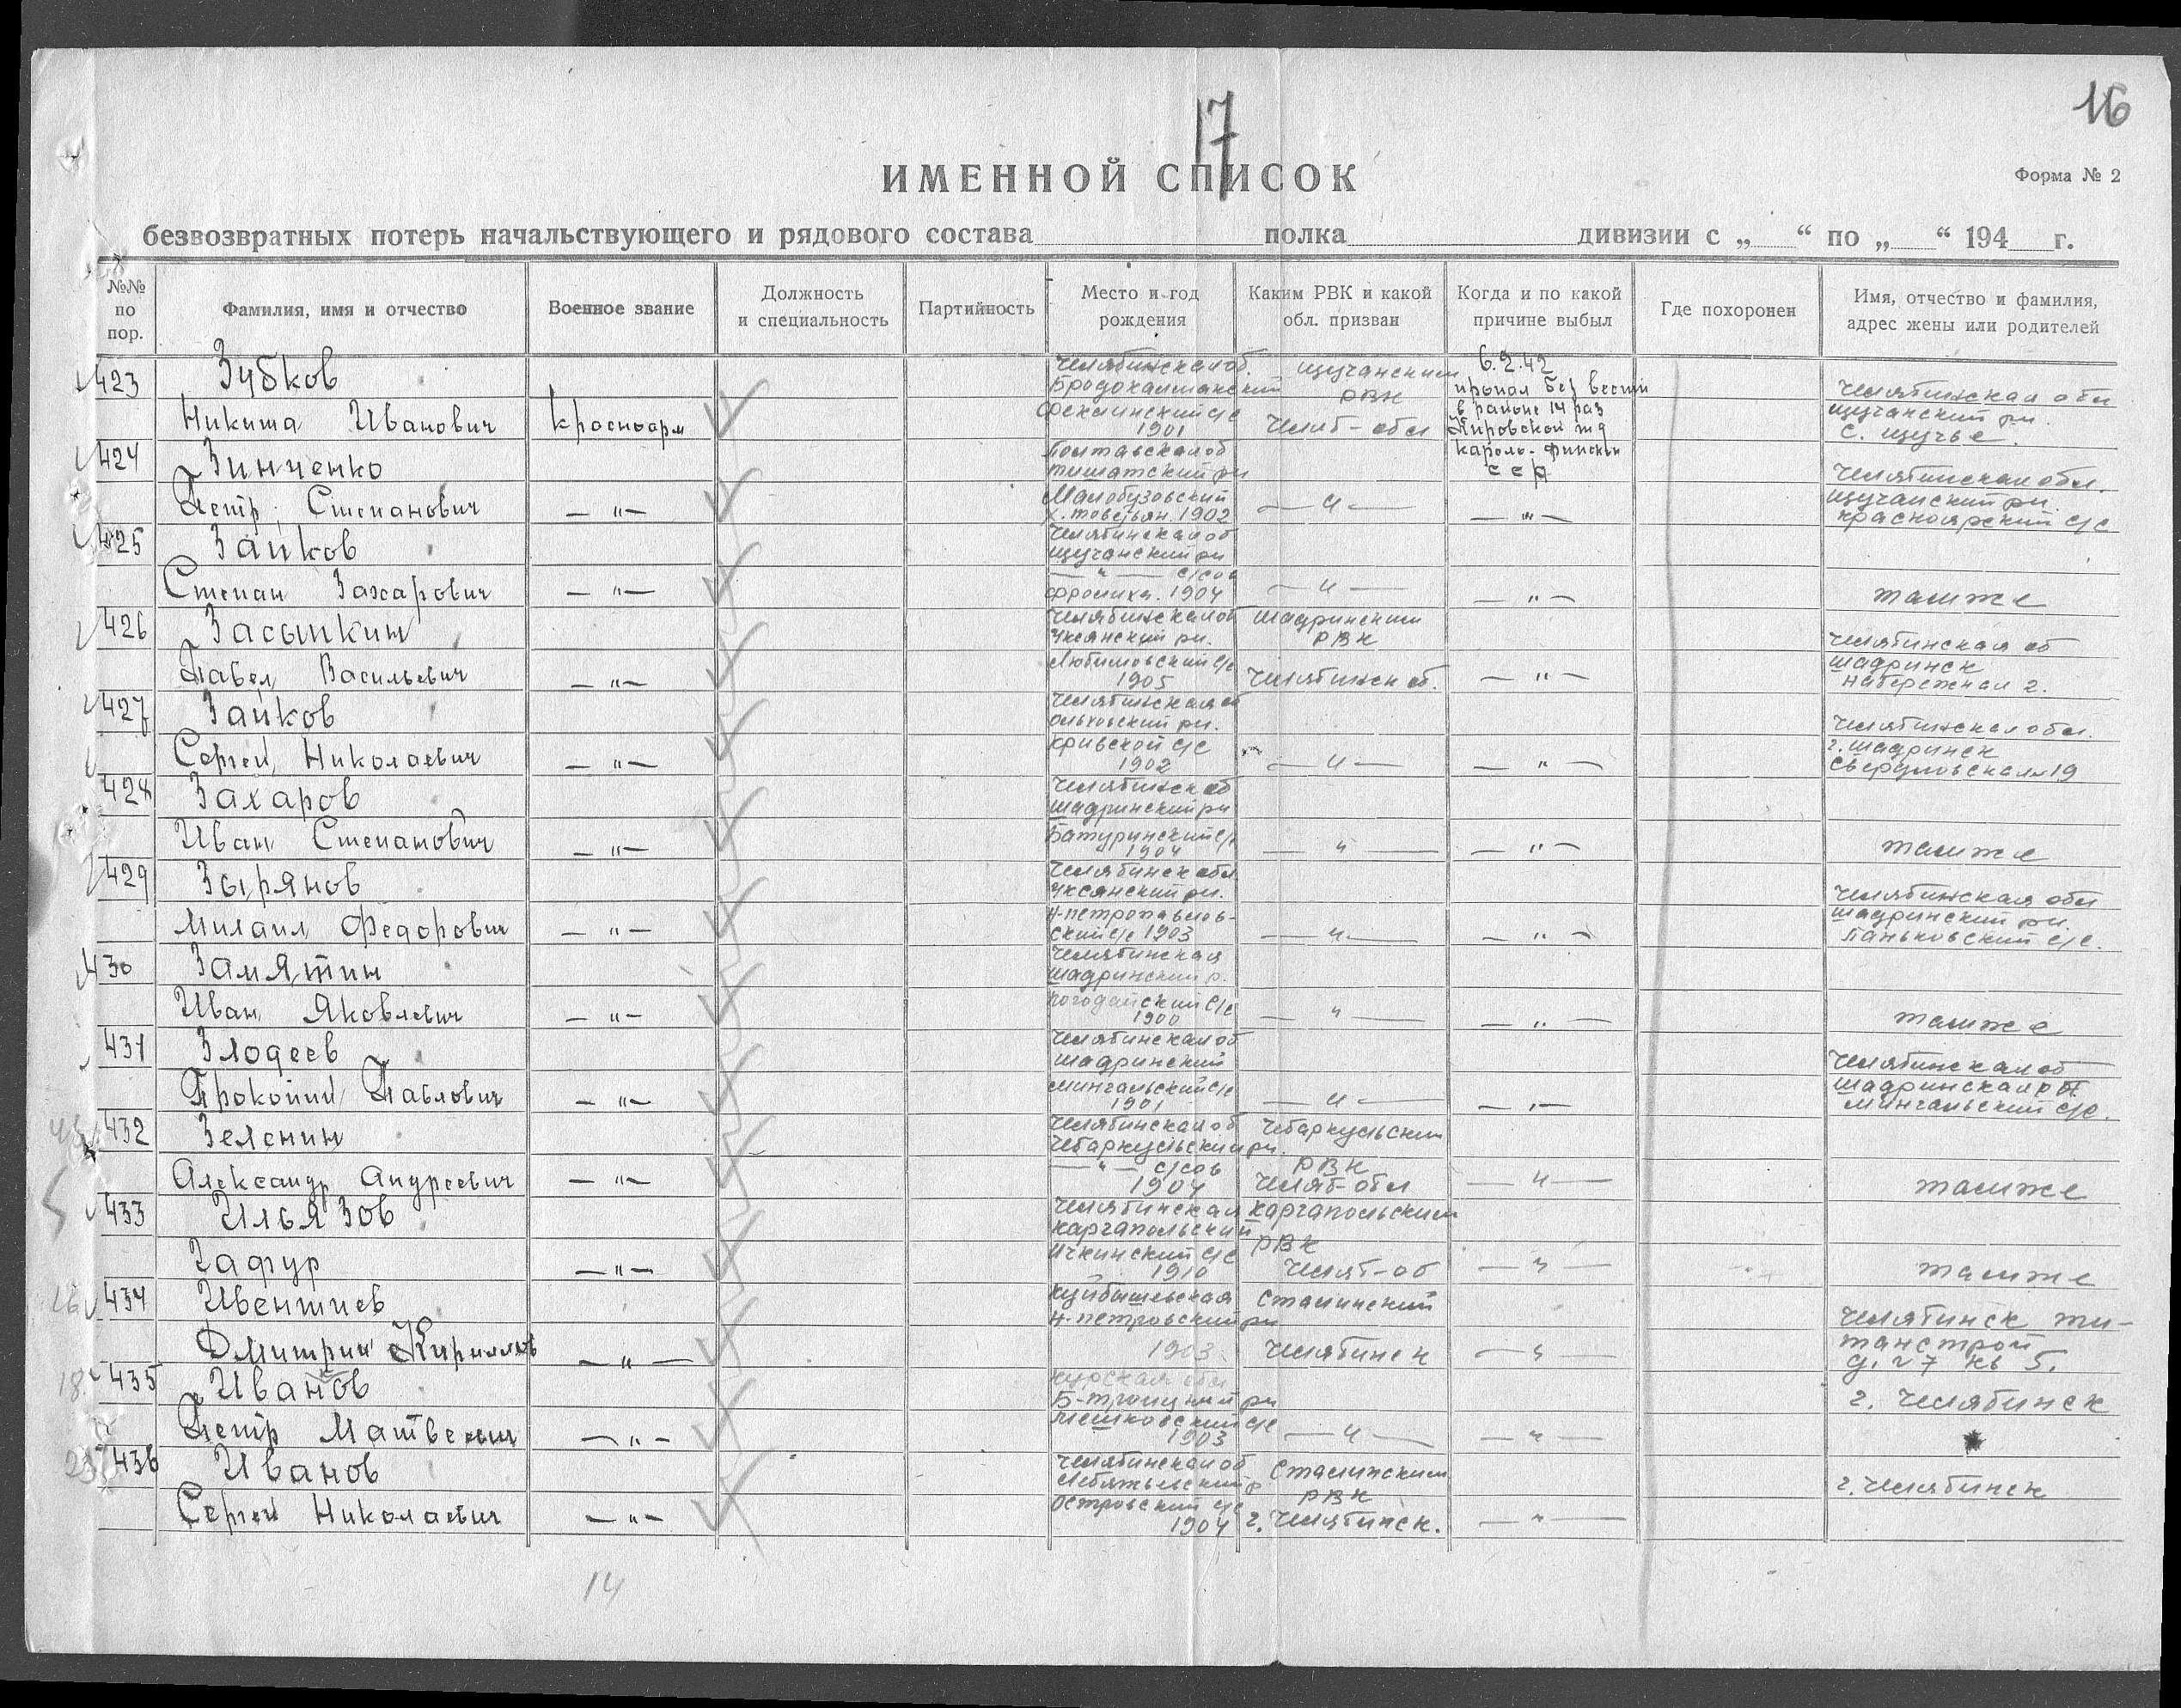 17
16
ИМЕННОЙ СПИСОК
Форма № 2
безвозвратных потерь начальствующего и рядового состава полка дивизии с „ “ по „ “ 194 г.
№№ по пор.
Фамилия, имя и отчество
Военное звание
Должность и специальность
Партийность
Место и год рождения
Каким РВК и какой обл. призван
Когда и по какой причине выбыл
Где похоронен
Имя, отчество и фамилия, адрес жены или родителей
423 Зубков
Никита Иванович Красноарм
Челябинская об.
1901
Щучанским
РВК
Челяб-обл
6.2.42
пропал без вести
в районе 14 раз
Кировской жд
Карело-финской
ССР
Челябинская обл
Щучанский рн.
с. Щучье.
424 Зинченко
Петр Степанович — " —
Полтавская об
1902
— " —
— " —
Челябинская обл.
Щучанский рн.
Красноярский с/с
425 Зайков
Степан Захарович — " —
Челябинская об
Щучанский рн
— " — с/сов
1904
— " —
— " —
там же
426 Засыпкин
Павел Васильевич — " —
Челябинская об
Уксянский рн.
Любимовский с/с
1905
Шадринским
РВК
Челябинск об.
— " —
Челябинская об
Шадринск
Набережная 2.
427 Зайков
Сергей Николаевич — " —
Челябинская об
Ольховский рн.
Кривской с/с
1902
— " —
— " —
Челябинская обл.
г. Шадринск
Свердловская 19
428 Захаров
Иван Степанович — " —
Челябинск об
Шадринский рн
Батуринский с/с
1904
— " —
— " —
там же
429 Зырянов
Михаил Федорович — " —
Челябинск обл
Уксянский рн.
Н-петропавловский с/с 1903
— " —
— " —
Челябинская обл
Шадринский рн.
с/с.
430 Замятин
Иван Яковлевич — " —
Челябинская
Шадринский р.
с/с
1900
— " —
— " —
там же
431 Злодеев
Прокопий Павлович — " —
Челябинская об
Шадринский
Мингальский с/с
1901
— " —
— " —
Челябинская об
Мингальский с/с.
432 Зеленин
Александр Андреевич — " —
Челябинская об
Чебаркульский рн.
— " — с/сов
1904
Чебаркульским
РВК
Челяб-обл
— " —
там же
433 Ильязов
Гафур — " —
Челябинская
Каргапольский
Ичкинский с/с
1910
Каргапольским
РВК
Челяб-об
— " —
там же
434 Ивентиев
Дмитрий Кириллов — " —
Куйбышевская
Н-петровский рн
1903.
Сталинский
Челябинск
— " —
Челябинск ти-
танстрой
д. 27 кв 5.
435 Иванов
Петр Матвеевич — " —
Курская обл
Б-троицкий рн
Мешковский с/с
1903
— " —
— " —
г. Челябинск
436 Иванов
Сергей Николаевич — " —
Челябинская об
Лебяжьевский р
Островский с/с
1904
Сталинским
РВК
г. Челябинск.
— " —
г. Челябинск
14